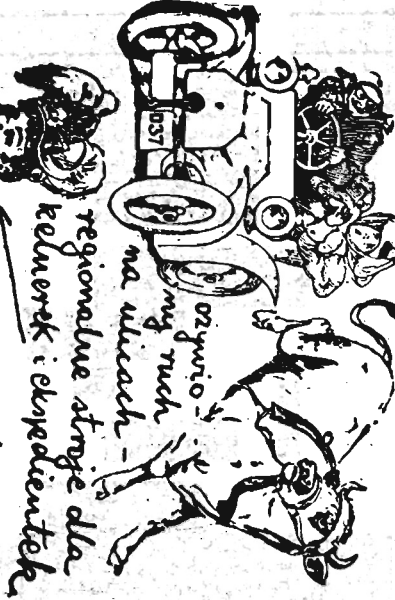 ożywio-
ny ruch
na ulicach -
regionalne stroje dla
kelnerek i ekspedientek